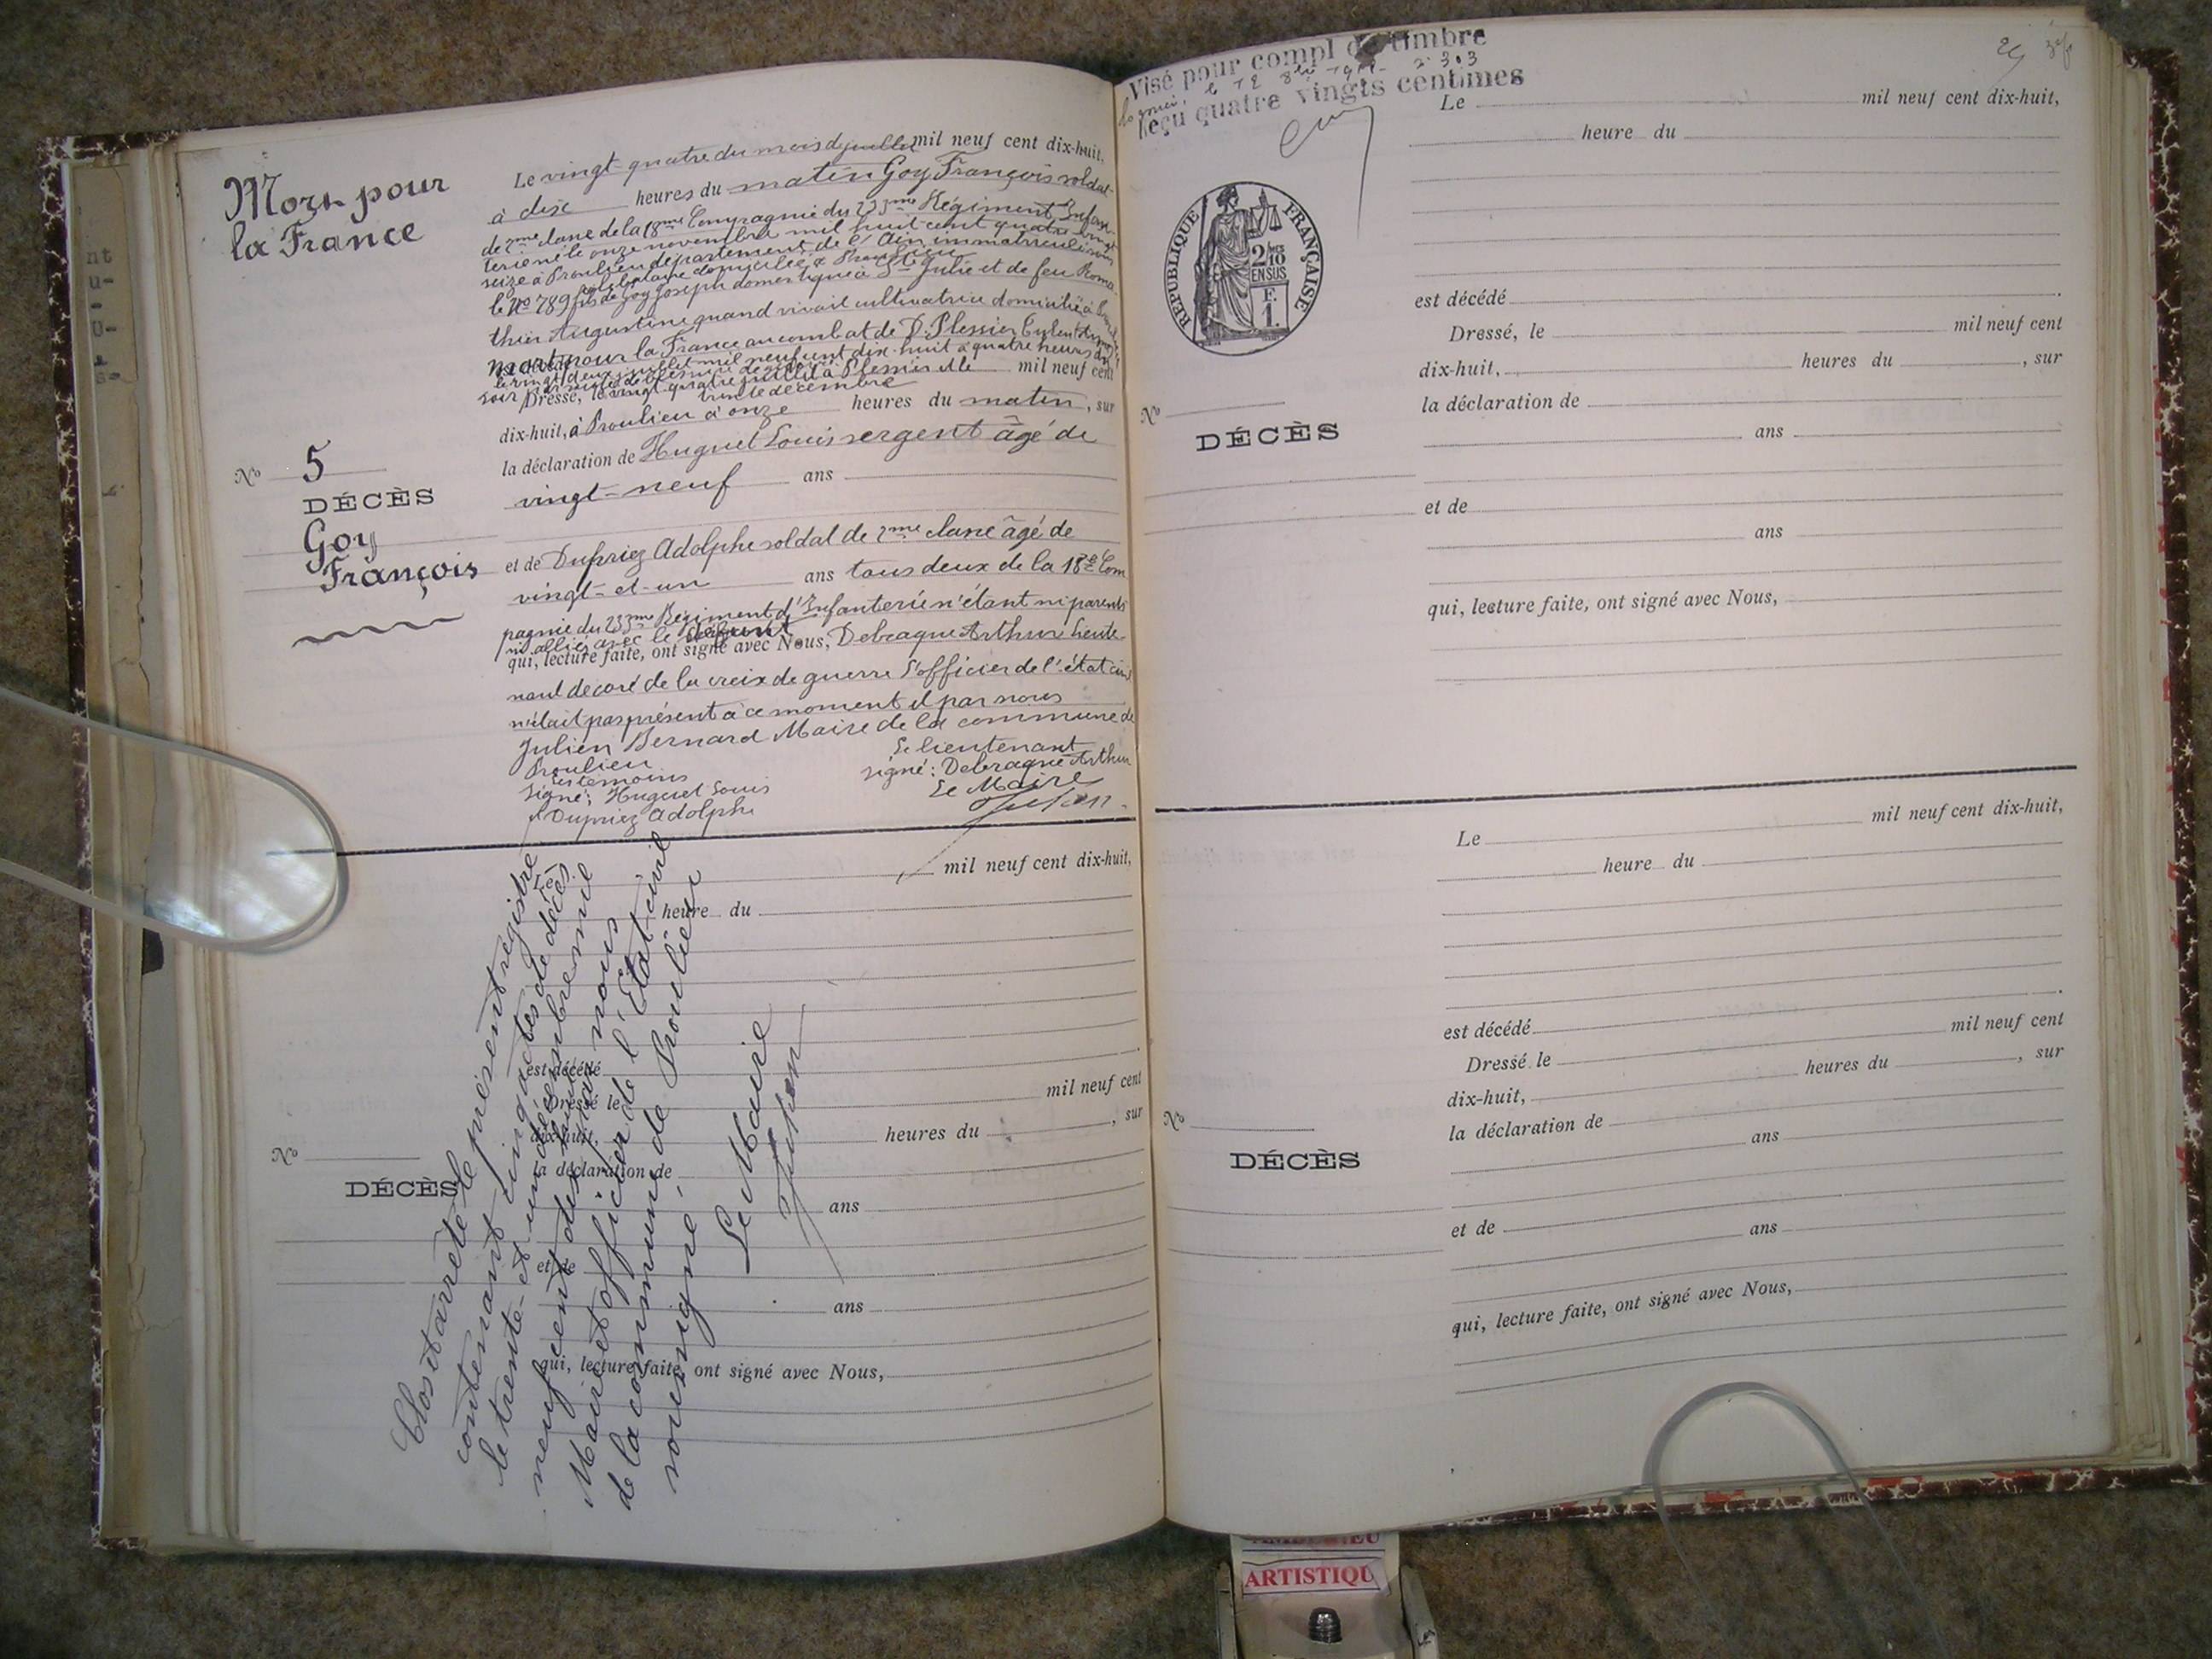 Mort pour
la France
N° 5
DÉCÈS
Goy
François
Le vingt-quatre du mois de juillet mil neuf cent dix-huit,
à dix heures du matin Goy François soldat
de 2me classe de la 18me Compagnie du 233me Régiment Infan-
terie né le onze novembre mil huit cent quatre vingt
seize à Proulieu département de l'Ain immatriculé sous
célibataire domicilié à Proulieu
le No 789 fils de Goy Joseph domestique à Ste Julie et de feu Roma
thier Augustine quand vivait cultivatrice domiciliée à
mort pour la France au combat de Plessier
est décédé
le vingt deux juillet mil neuf cent dix-huit à quatre heures du
soir
Dressé, le vingt-quatre juillet à Plessier mil neuf cent
trente décembre
dix-huit, à Proulieu à onze heures du matin, sur
la déclaration de Huguet Louis sergent âgé de
vingt-neuf ans
et de Dupriez Adolphe soldat de 2me classe âgé de
vingt-et-un ans tous deux de la 18me Com
pagnie du 233me Régiment d'Infanterie n'étant ni parents
ni alliés avec le défunt
qui, lecture faite, ont signé avec Nous, Debraque Arthur Lieute-
nant decoré de la croix de guerre l'officier de l'état civil
n'était pas présent à ce moment et par nous
Julien Bernard Maire de la commune de
Proulieu
Les temoins
Signé: Huguet Louis
Dupriez Adolphe
Le lieutenant
signé: Debraque Arthur
Le Maire
Julien
Le mil neuf cent dix-huit,
heure du
est décédé
Dressé le mil neuf cent
dix-huit, heures du , sur
la déclaration de
ans
N°
DÉCÈS
et de
ans
qui, lecture faite, ont signé avec Nous,
Clos et arrêté le présent registre
contenant cinq actes de décès
le trente-et-un décembre mil
neuf cent dix huit par nous
Maire et officier de l'État civil
de la commune de Proulieu
soussigné,
Le Maire
Julien
Visé pour compl de timbre
Reçu quatre vingts centimes
RÉPUBLIQUE FRANÇAISE
2/10
EN SUS
F.
1.
Le mil neuf cent dix-huit,
heure du
est décédé .
Dressé, le mil neuf cent
dix-huit, heures du , sur
la déclaration de
N°
DÉCÈS
ans
et de
ans
qui, lecture faite, ont signé avec Nous,
Le mil neuf cent dix-huit,
heure du
est décédé .
Dressé le mil neuf cent
dix-huit, heures du , sur
la déclaration de
N°
DÉCÈS
ans
et de
ans
qui, lecture faite, ont signé avec Nous,
ARTISTIQU